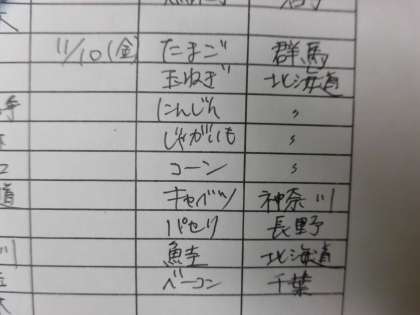 11/10(金) たまご 群馬
玉ねぎ 北海道
にんじん 〃
じゃがいも 〃
コーン 〃
道 キャベツ 神奈川
パセリ 長野
川 鮭 北海道
ベーコン 千葉